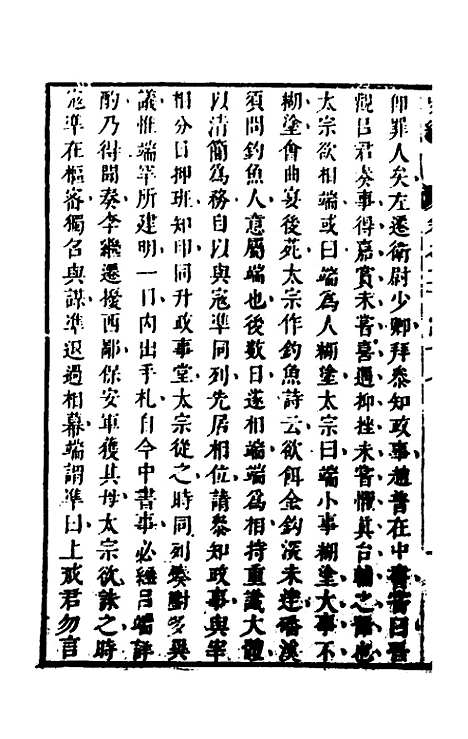 仰罪人矣左遷衛尉少卿拜叅知政事趙普在中書嘗曰吾
觀呂君奏事得嘉賞未甞喜遇抑挫未甞懼真台輔之器也
太宗欲相端或曰端爲人糊塗太宗曰端小事糊塗大事不
糊塗會曲宴後苑太宗作釣魚詩云欲餌金鈎深未達磻溪
須問釣魚人意屬端也後數日遂相端端爲相持重識大體
以淸簡爲務自以與寇準同列先居相位請叅知政事與宰
相分日押班知印同升政事堂太宗從之時同列奏對多異
議惟端罕所建明一日内出手札自今中書事必經呂端詳
酌乃得聞奏李繼遷擾西鄙保安軍獲其母太宗欲誅之時
寇準在樞密獨召與謀準退過相幕端謂準曰上戒君勿言